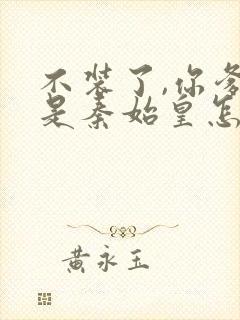 不装了,你爹
是秦始皇怎
黄永玉